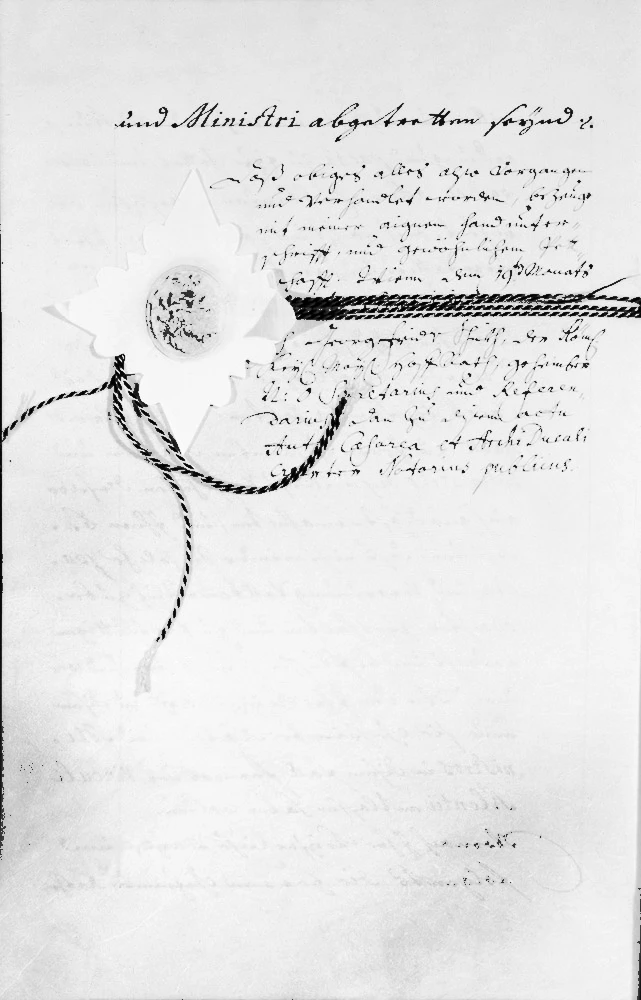 und Ministri abgetretten seynd ꝛc.
Daß obiges alles also vorgangen
und verhandlet worden, bezeuge
mit meiner aignen handunter-
schrifft und gewöhnlichem Pet-
schafft. Wienn den 19ᵗ Monats
Georg Fridr. Schütz, der Röm.
Kayl. Mayl. Hoff Rath, geheimber
N: Ö Secretarius und Referen-
darius, und zu diesem actu
Aut. Cæsarea et Archi Ducali
Notarius publicus.